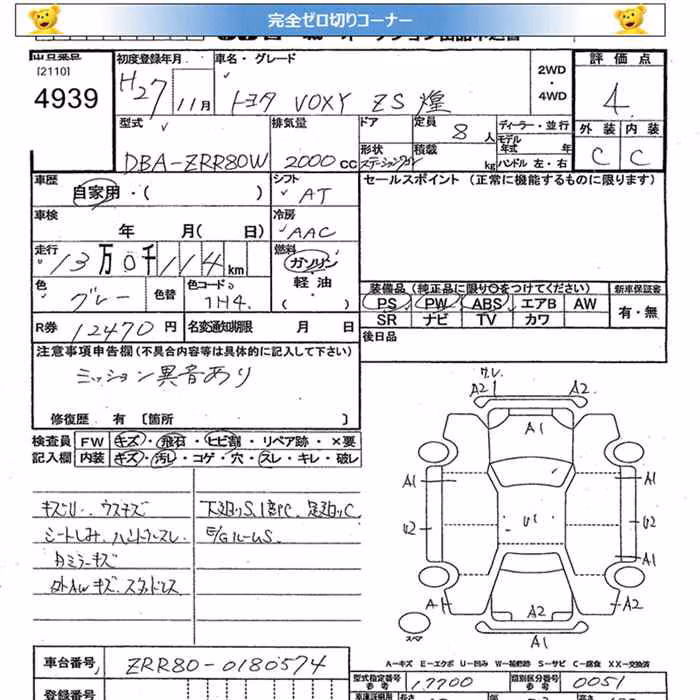 完全ゼロ切りコーナー
出品番号
[2110]
4939
初度登録年月
H27 11月
車名・グレード
トヨタ VOXY ZS 煌
2WD
・
4WD
評価点
4
外装 内装
C C
型式
DBA-ZRR80W
排気量
2000cc
ドア
形状
ステーションワゴン
定員
8人
積載
kg
ディーラー・並行
モデル年式 年
ハンドル 左・右
車歴
自家用・( )
シフト
AT
セールスポイント (正常に機能するものに限ります)
車検
年 月(日)
冷房
AAC
走行
13万0千114km
燃料
ガソリン
軽油
( )
色
グレー
色替
色コード
1H4
装備品(純正品に限り○をつけてください)
新車保証書
PS PW ABS エアB AW
有・無
SR ナビ TV カワ
R券 12470円
名変通知期限 月 日
後日品
注意事項申告欄(不具合内容等は具体的に記入して下さい)
ミッション異音あり
修復歴 有〔箇所 〕
検査員 FW キズ・飛石・ヒビ割・リペア跡・×要
記入欄 内装 キズ・汚レ・コゲ・穴・スレ・キレ・破レ
キズU、ウスキズ
シートしみ、ハンドルスレ
下廻りS、1部PC、足廻りC
E/GルームS
カミラーキズ
外AWキズ、スタッドレス
A2 A2
A1
A1 A1
U2 U1 U2
A1
A A1
A2
A1
スペア
A-キズ E-エクボ U-凹み W-補修跡 S-サビ C-腐食 XX-交換済
車台番号
ZRR80-0180574
型式指定番号
参考
17700
類別区分番号
参考
0051
登録番号